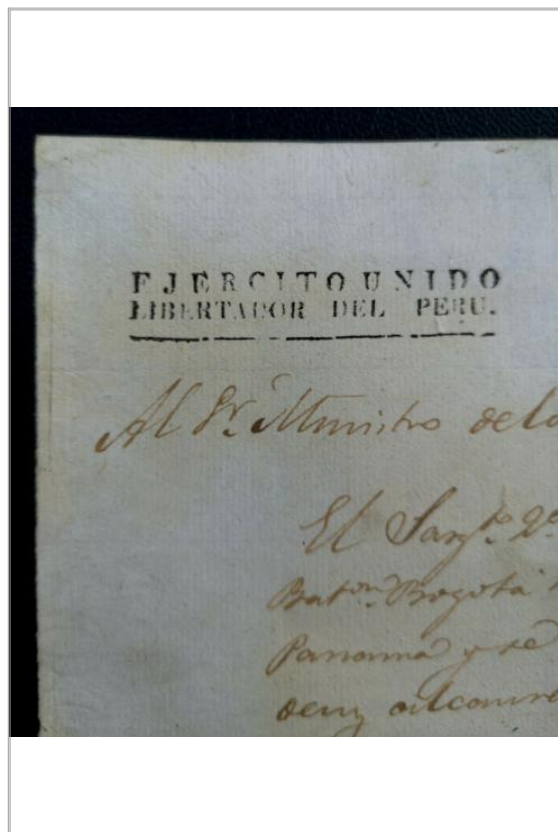 EJERCITO UNIDO
LIBERTADOR DEL PERU.
Al Sr. Ministro dela
El Sargto. 2o
Baton. Bogotá
Panamá y se